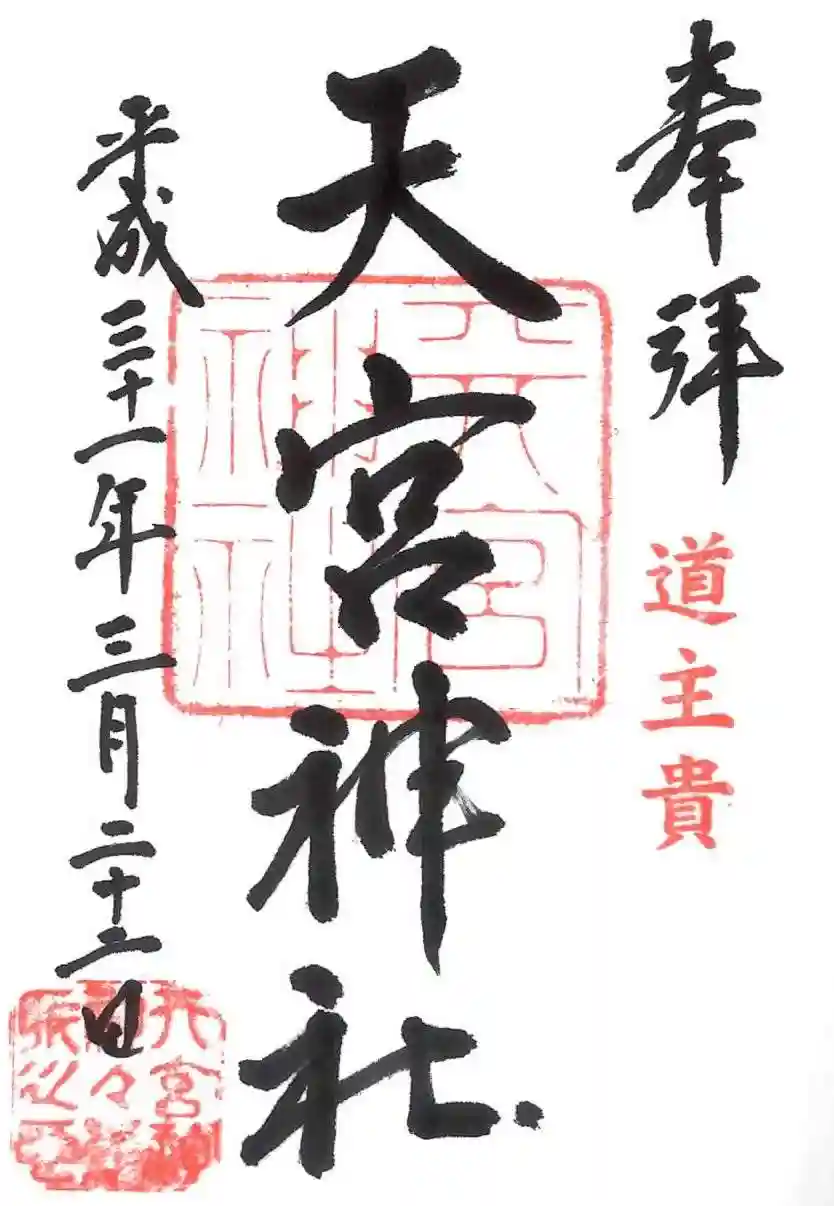 奉拝
道主貴
天宮神社
天宮神社
平成三十一年三月二十二日